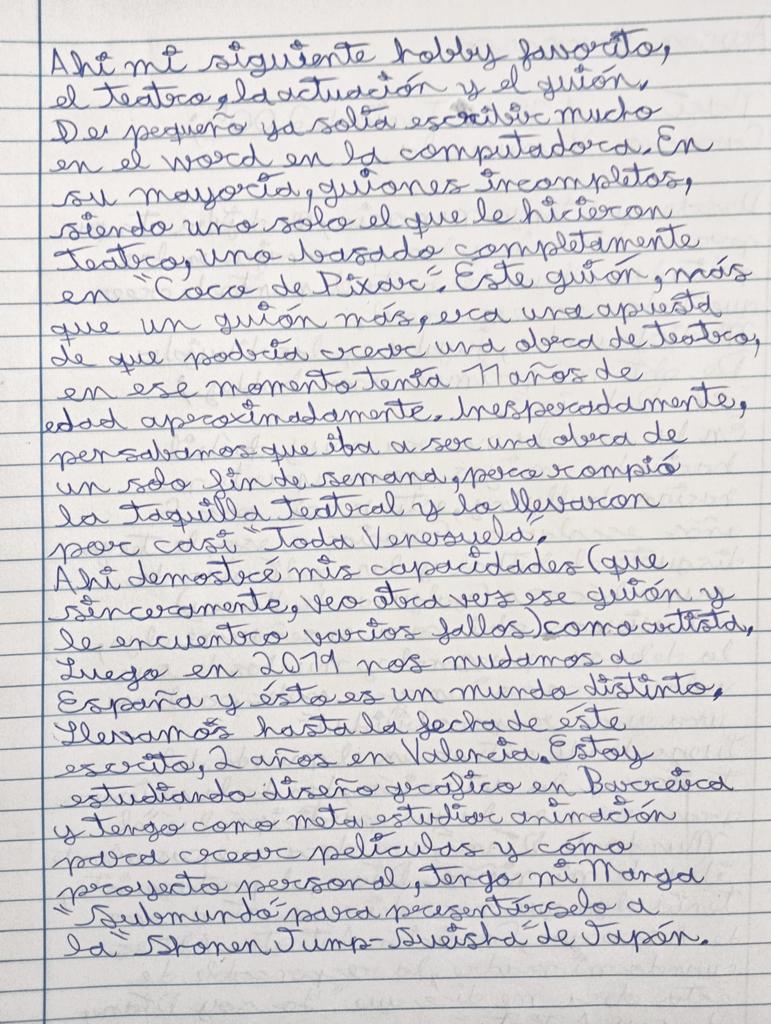 Ahí mi siguiente hobby favorito,
el teatro, la actuación y el guión.
De pequeño ya solía escribir mucho
en el word en la computadora. En
su mayoría, guiones incompletos,
siendo uno solo el que le hicieron
teatro, uno basado completamente
en "Coco de Pixar". Este guión, más
que un guión más, era una apuesta
de que podría crear una obra de teatro,
en ese momento tenía 11 años de
edad aproximadamente. Inesperadamente,
pensabamos que iba a ser una obra de
un solo fin de semana, pero rompió
la taquilla teatral y la llevaron
por casi "Toda Venezuela".
Ahí demostré mis capacidades (que
sinceramente, veo otra vez ese guión y
le encuentro varios fallos) como artista,
Luego en 2019 nos mudamos a
España y ésto es un mundo distinto.
Llevamos hasta la fecha de éste
escrito, 2 años en Valencia. Estoy
estudiando diseño gráfico en Barreira
y tengo como meta estudiar animación
para crear películas y cómo
proyecto personal, tengo mi Manga
"Submundo" para presentárselo a
la "Shonen Jump-Sueisha" de Japón.